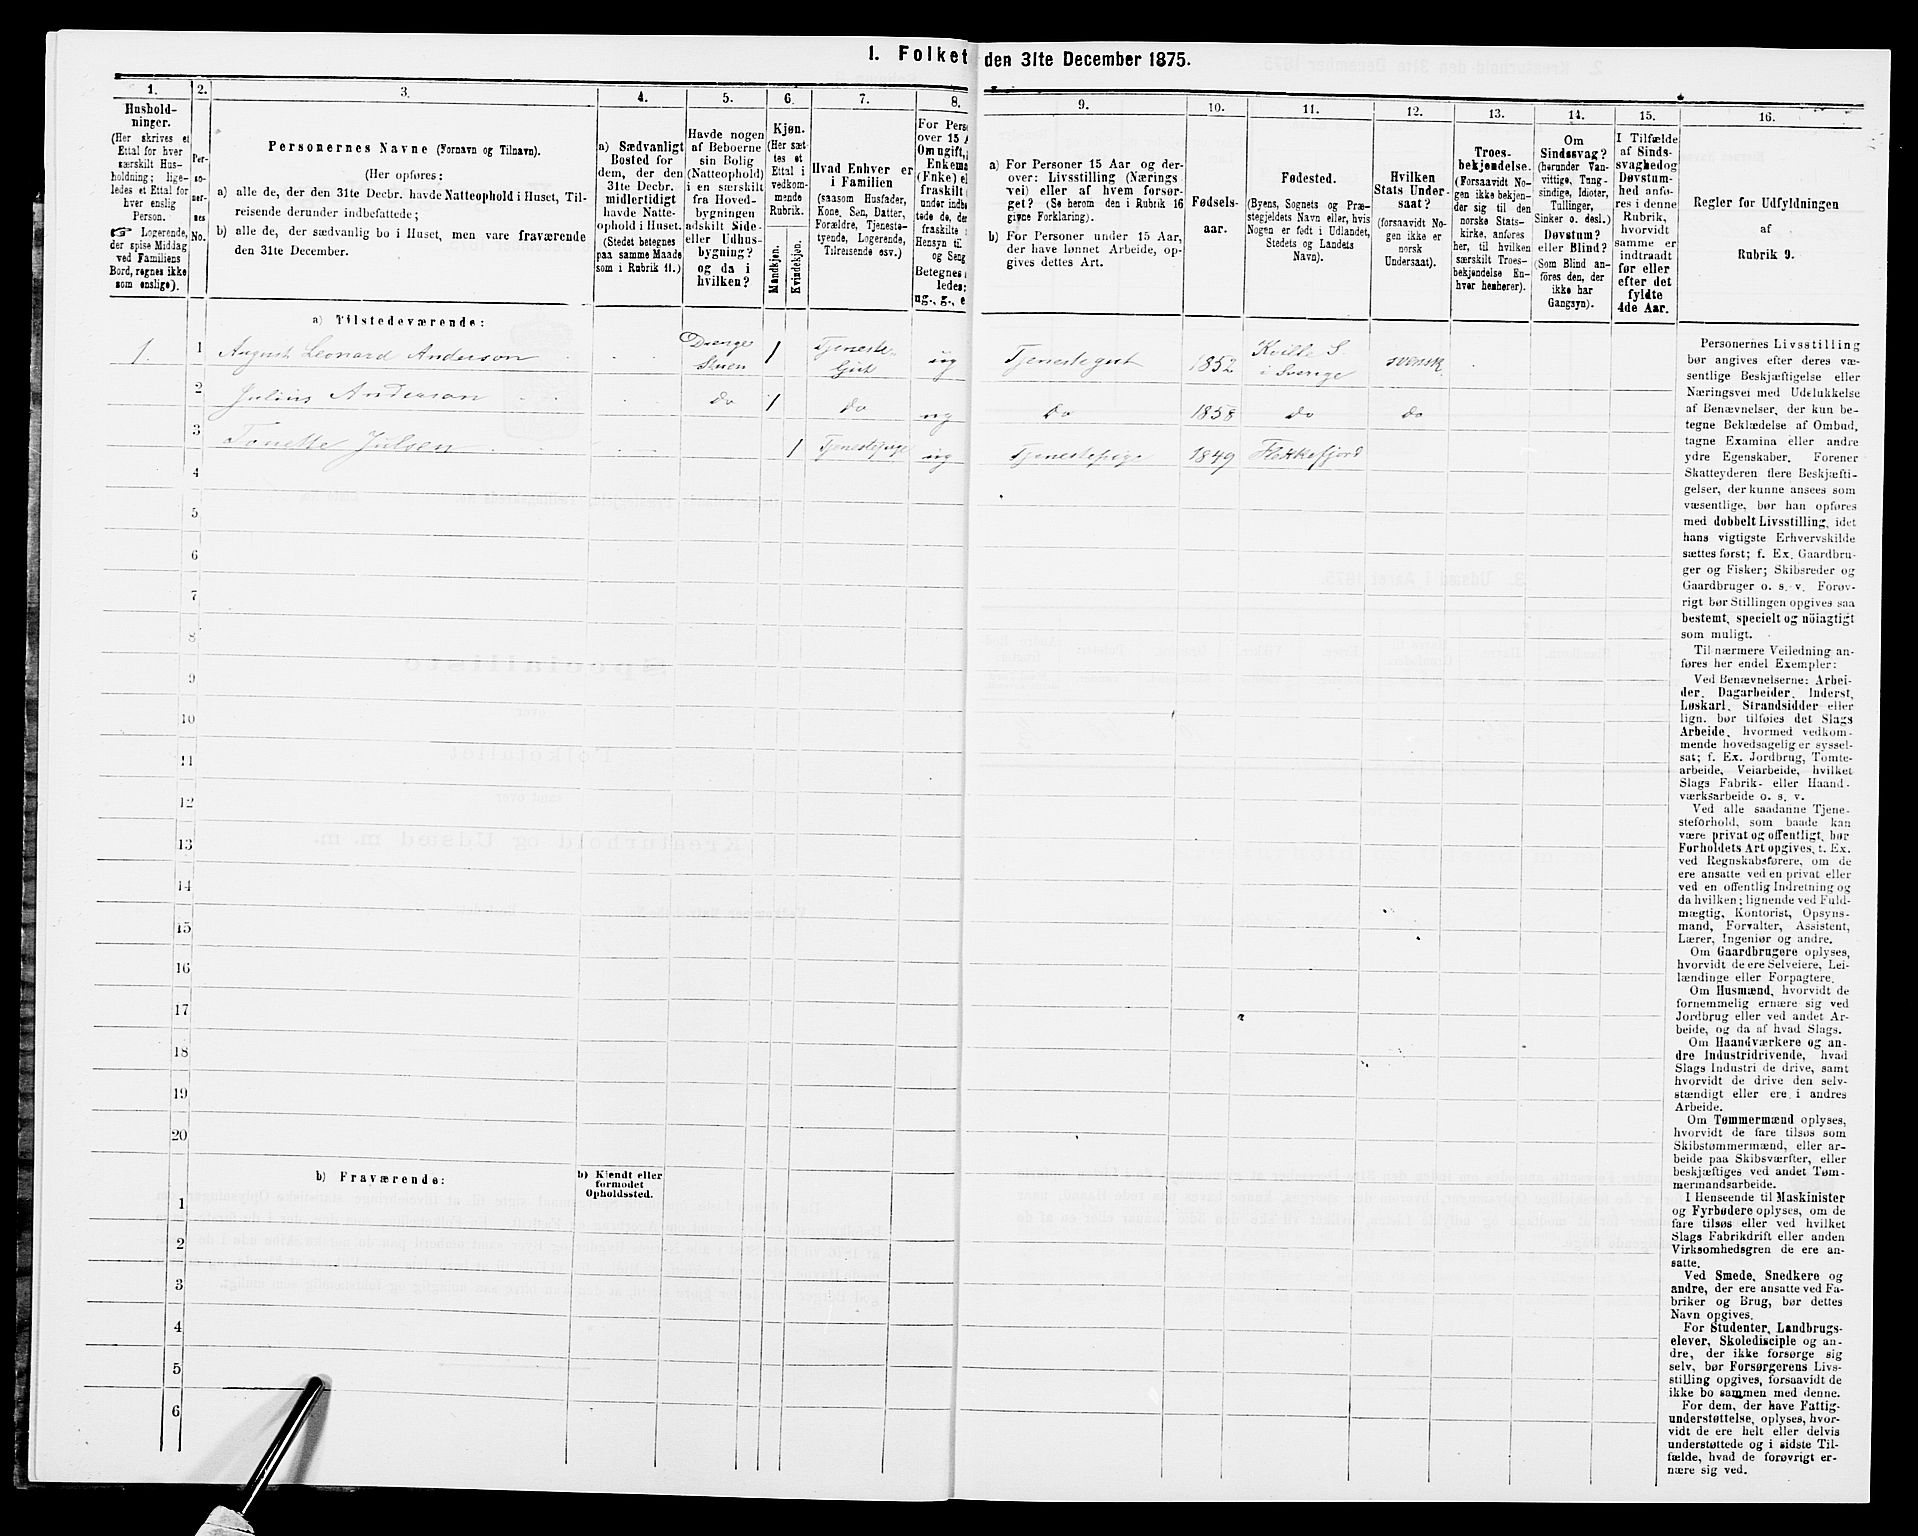 1. Folket
den 31te December 1875.
1.
2.
3.
4.
5.
6.
7.
8.
9.
10.
11.
12.
13.
14.
15.
16.
Hushold-
ninger.
(Her skrives et
Ettal for hver
særskilt Hus-
holdning; lige-
ledes et Ettal for
hver enslig
Person.
☞ Logerende,
der spise Middag
ved Familiens
Bord, regnes ikke
som enslige).
Per-
so-
ner-
nes
No.
Personernes Navne (Fornavn og Tilnavn).
(Her opføres:
a) alle de, der den 31te Decbr. havde Natteophold i Huset, Til-
reisende derunder indbefattede;
b) alle de, der sædvanlig bo i Huset, men vare fraværende
den 31te December.
a) Sædvanligt
Bosted for
dem, der den
31te Decbr.
midlertidigt
havde Natte-
ophold i Huset.
(Stedet betegnes
paa samme Maade
som i Rubrik 11.)
Havde nogen
af Beboerne
sin Bolig
(Natteophold)
i en særskilt
fra Hoved-
bygningen
adskilt Side-
eller Udhus-
bygning?
og da i
hvilken?
Kjøn.
(Her sæt-
tes et
Ettal i
vedkom-
mende
Rubrik.
Mandkjøn.
Kvindekjøn.
Hvad Enhver er
i Familien
(saasom Husfader,
Kone, Søn, Datter,
Forældre, Tjeneste-
tyende, Logerende,
Tilreisende osv.)
For Perso
over 15 A
Om ugift,
Enkema
(Enke) e
fraskilt
under indb
tede de, der
fraskilte
Hensyn til
og Seng
Betegnes
ledes:
ug., g., e
a) For Personer 15 Aar og der-
over: Livsstilling (Nærings-
vei) eller af hvem forsør-
get? (Se herom den i Rubrik 16
givne Forklaring).
b) For Personer under 15 Aar,
der have lønnet Arbeide, op-
gives dettes Art.
Fødsels-
aar.
Fødested.
(Byens, Sognets og Præ-
stegjeldets Navn eller, hvis
Nogen er født i Udlandet,
Stedets og Landets
Navn).
Hvilken
Stats Under-
saat?
(forsaavidt No-
gen ikke er
norsk
Undersaat).
Troes-
bekjendelse.
(Forsaavidt No-
gen ikke bekjen-
der sig til den
norske Stats-
kirke, anføres
her, til hvilken
særskilt Troes-
bekjendelse En-
hver henhører).
Om
Sindssvag?
(herunder Van-
vittige, Tung-
sindige, Idioter,
Tullinger,
Sinker o. desl.)
Døvstum?
eller Blind?
(Som Blind an-
føres den, der
ikke har
Gangsyn).
I Tilfælde
af Sinds-
svaghed og
Døvstum-
hed anfø-
res i denne
Rubrik,
hvorvidt
samme er
indtraadt
før eller
efter det
fyldte
4de Aar.
Regler for Udfyldningen
af
Rubrik 9.
a) Tilstedeværende:
1. 1 August Leonard Anderson Drenge Stuen 1 Tjeneste-Gut ug Tjenestegut 1852 Kville S. i Sverige svensk
2 Julius Anderson do 1 do ug do 1858 do do
3 Tonette Julsen 1 Tjenestepige ug Tjenestepige 1849 Flekkefjord
4
5
6
7
8
9
10
11
12
13
14
15
16
17
18
19
20
b) Fraværende:
b) Kjendt eller
formodet
Opholdssted.
1
2
3
4
5
6
Personernes Livsstilling
bør angives efter deres væ-
sentlige Beskjæftigelse eller
Næringsvei med Udelukkelse
af Benævnelser, der kun be-
tegne Beklædelse af Ombud,
tagne Examina eller andre
ydre Egenskaber. Forener
Skatteyderen flere Beskjæfti-
gelser, der kunne ansees som
væsentlige, bør han opføres
med dobbelt Livsstilling, idet
hans vigtigste Erhvervskilde
sættes først; f. Ex. Gaardbru-
ger og Fisker; Skibsreder og
Gaardbruger o. s. v. Forøv-
rigt bør Stillingen opgives saa
bestemt, specielt og nöiagtigt
som muligt.
Til nærmere Veiledning an-
føres her endel Exempler:
Ved Benævnelserne: Arbei-
der, Dagarbeider, Inderst,
Løskarl, Strandsidder eller
lign. bør tilføies det Slags
Arbeide, hvormed vedkom-
mende hovedsagelig er syssel-
sat; f. Ex. Jordbrug, Tomte-
arbeide, Veiarbeide, hvilket
Slags Fabrik- eller Haand-
værksarbeide o. s. v.
Ved alle saadanne Tjene-
steforhold, som baade kan
være privat og offentligt, bør
Forholdets Art opgives, f. Ex.
ved Regnskabsførere, om de
ere ansatte ved en privat eller
ved en offentlig Indretning og
da hvilken; lignende ved Fuld-
mægtig, Kontorist, Opsyns-
mand, Forvalter, Assistent,
Lærer, Ingeniør og andre.
Om Gaardbrugere oplyses,
hvorvidt de ere Selveiere, Lei-
lændinge eller Forpagtere.
Om Husmænd, hvorvidt de
fornemmelig ernære sig ved
Jordbrug eller ved andet Ar-
beide, og da af hvad Slags.
Om Haandværkere og an-
dre Industridrivende, hvad
Slags Industri de drive, samt
hvorvidt de drive den selv-
stændigt eller ere i andres
Arbeide.
Om Tømmermænd oplyses,
hvorvidt de fare tilsøs som
Skibstømmermænd, eller ar-
beide paa Skibsværfter, eller
beskjæftiges ved andet Tøm-
mermandsarbeide.
I Henseende til Maskinister
og Fyrbødere oplyses, om de
fare tilsøs eller ved hvilket
Slags Fabrikdrift eller anden
Virksomhedsgren de ere an-
satte.
Ved Smede, Snedkere og
andre, der ere ansatte ved Fa-
briker og Brug, bør dettes
Navn opgives.
For Studenter, Landbrugs-
elever, Skoledisciple og an-
dre, der ikke forsørge sig
selv, bør Forsørgerens Livs-
stilling opgives, forsaavidt de
ikke bo sammen med denne.
For dem, der have Fattig-
understøttelse, oplyses, hvor-
vidt de ere helt eller delvis
understøttede og i sidste Til-
fælde, hvad de forøvrigt er-
nære sig ved.